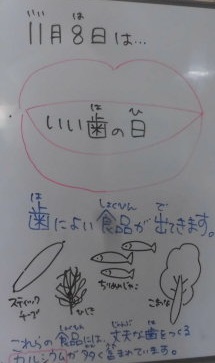 いい は
11月8日は…
は ひ
いい歯の日
は しょくひん で
歯によい食品が出てきます。
スティック
チーズ
ひじき
ちりめんじゃこ
こまつな
しょくひん じょうぶ は
これらの食品には丈夫な歯をつくる
カルシウムが多く含まれています。